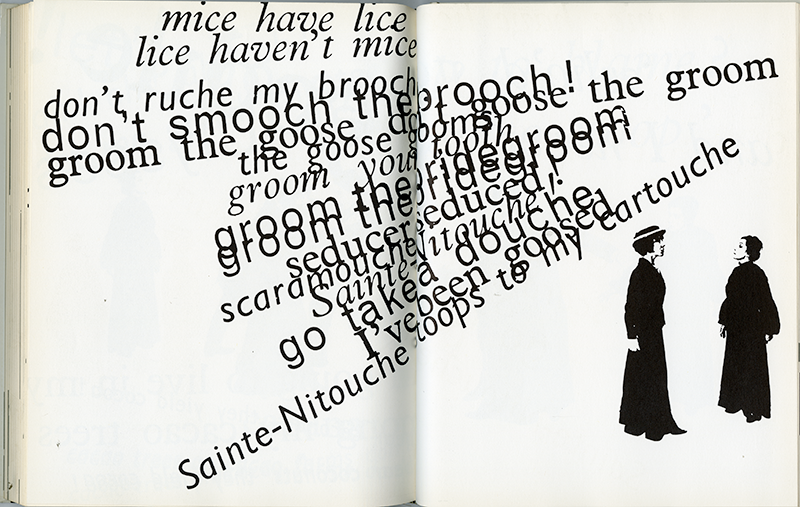 mice have lice
lice haven't mice
don't ruche my brooch
don't smooch the brooch!
groom the goose don't goose the groom
the goose grooms
groom your tooth
groom the bridegroom
groom the bridegroom
seducer seduced!
scaramouche!
Sainte-Nitouche!
go take a douche
I've been goosed
Sainte-Nitouche stoops to my cartouche